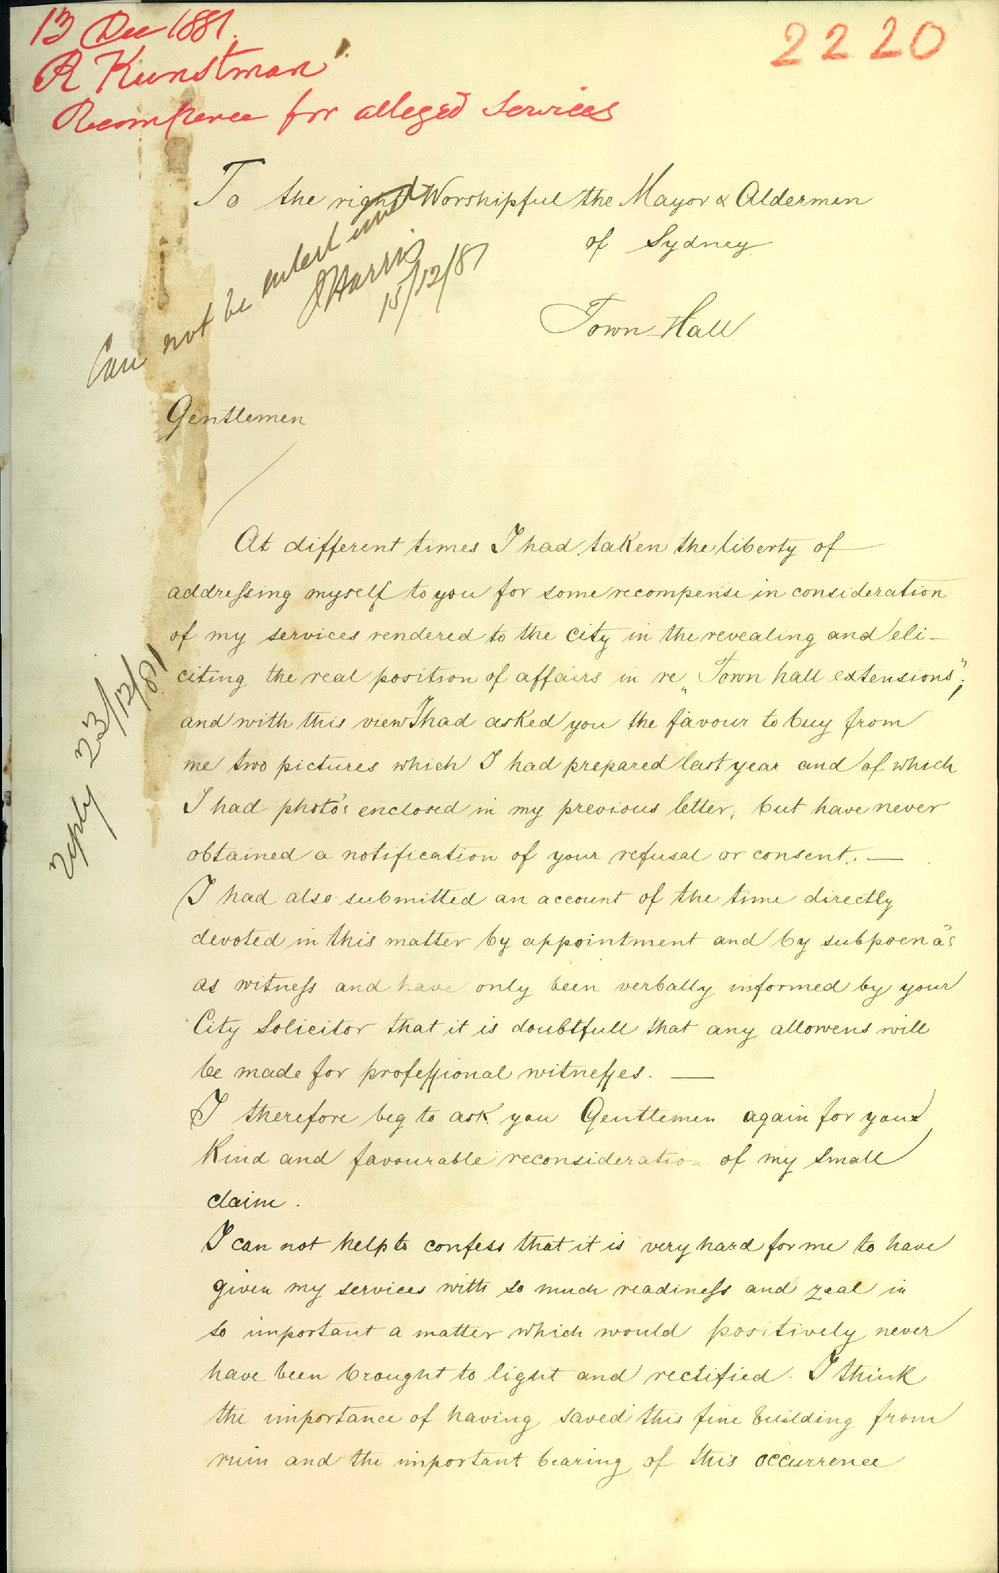 13 Dec 1881.
R Kunstman
Recompence for alleged Services
2220
To the right Worshipful the Mayor & Aldermen
of Sydney
Town Hall
Can not be entertained
J Harris
15/12/81
Gentlemen
At different times I had taken the liberty of
addressing myself to you for some recompense in consideration
of my services rendered to the city in the revealing and eli-
citing the real position of affairs in re „Town hall extensions";
and with this view I had asked you the favour to buy from
me two pictures which I had prepared last year and of which
I had photo's enclosed in my previous letter, but have never
obtained a notification of your refusal or consent. —
I had also submitted an account of the time directly
devoted in this matter by appointment and by subpoena's
as witness and have only been verbally informed by your
City Solicitor that it is doubtfull that any allowens will
be made for professional witnesses. —
I therefore beg to ask you Gentlemen again for your
kind and favourable reconsideration of my small
claim.
I can not help to confess that it is very hard for me to have
given my services with so much readiness and zeal in
so important a matter which would positively never
have been brought to light and rectified. I think
the importance of having saved this fine building from
ruin and the important bearing of this occurrence
reply 23/12/81